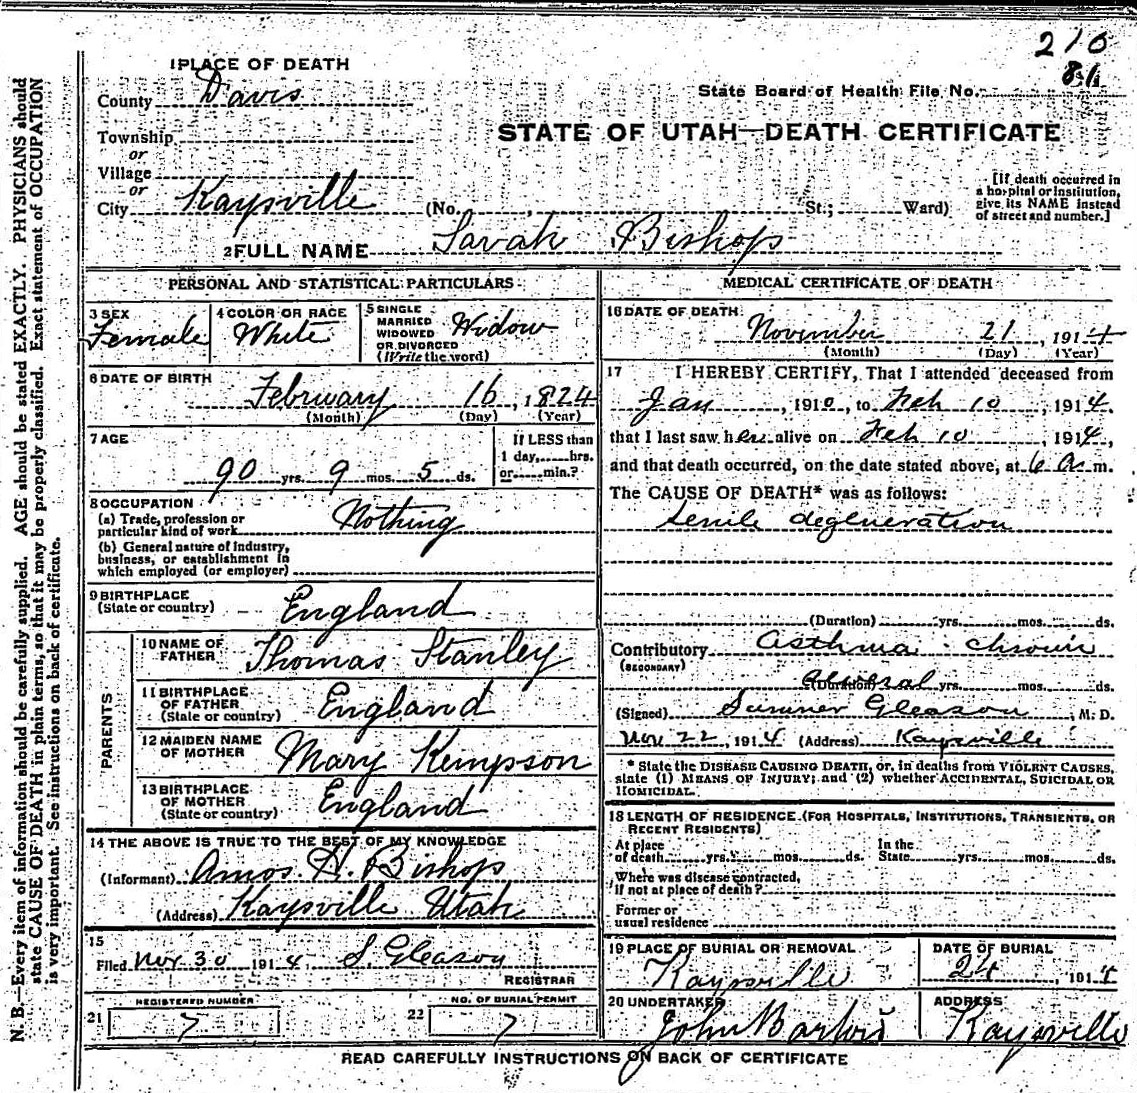 210
81
1 PLACE OF DEATH
County Davis
State Board of Health File No.
Township
or
STATE OF UTAH—DEATH CERTIFICATE
Village
or
City Kaysville (No. , St.; Ward)
[If death occurred in
a hospital or institution,
give its NAME instead
of street and number.]
2 FULL NAME Sarah Bishop
PERSONAL AND STATISTICAL PARTICULARS
3 SEX
Female
4 COLOR OR RACE
White
5 SINGLE
MARRIED
WIDOWED
OR DIVORCED
(Write the word)
Widow
6 DATE OF BIRTH
February 16, 1824
(Month) (Day) (Year)
7 AGE
90 yrs. 9 mos. 5 ds.
If LESS than
1 day, hrs.
or min.?
8 OCCUPATION
(a) Trade, profession or
particular kind of work Nothing
(b) General nature of industry,
business, or establishment in
which employed (or employer)
9 BIRTHPLACE
(State or country) England
PARENTS
10 NAME OF
FATHER Thomas Stanley
11 BIRTHPLACE
OF FATHER
(State or country) England
12 MAIDEN NAME
OF MOTHER Mary Kempson
13 BIRTHPLACE
OF MOTHER
(State or country) England
14 THE ABOVE IS TRUE TO THE BEST OF MY KNOWLEDGE
(Informant) Amos H. Bishop
(Address) Kaysville Utah
15
Filed Nov 30 1914. S. Gleason
REGISTRAR
REGISTERED NUMBER
21 7
NO. OF BURIAL PERMIT
22 7
MEDICAL CERTIFICATE OF DEATH
16 DATE OF DEATH
November 21, 1914
(Month) (Day) (Year)
17 I HEREBY CERTIFY, That I attended deceased from
Jan, 1910, to Feb 10, 1914.
that I last saw her alive on Feb 10, 1914,
and that death occurred, on the date stated above, at 6 A. m.
The CAUSE OF DEATH* was as follows:
Senile degeneration
(Duration) yrs. mos. ds.
Contributory Asthma chronic
(SECONDARY)
(Duration) several yrs. mos. ds.
(Signed) Sumner Gleason, M. D.
Nov 22, 1914 (Address) Kaysville
* State the DISEASE CAUSING DEATH, or, in deaths from VIOLENT CAUSES,
state (1) MEANS OF INJURY; and (2) whether ACCIDENTAL, SUICIDAL OR
HOMICIDAL.
18 LENGTH OF RESIDENCE (FOR HOSPITALS, INSTITUTIONS, TRANSIENTS, OR
RECENT RESIDENTS)
At place In the
of death yrs. mos. ds. State yrs. mos. ds.
Where was disease contracted,
if not at place of death?
Former or
usual residence
19 PLACE OF BURIAL OR REMOVAL
Kaysville
DATE OF BURIAL
24 1914
20 UNDERTAKER
John Barton
ADDRESS
Kaysville
READ CAREFULLY INSTRUCTIONS ON BACK OF CERTIFICATE
N. B.—Every item of information should be carefully supplied. AGE should be stated EXACTLY. PHYSICIANS should
state CAUSE OF DEATH in plain terms, so that it may be properly classified. Exact statement of OCCUPATION
is very important. See instructions on back of certificate.